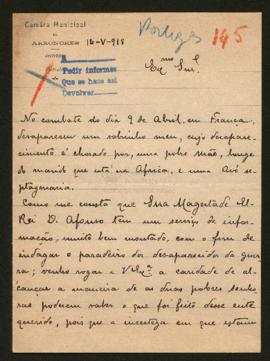 Camara Municipal
DE
ARRONCHES
16-V-918
Portugês 145
A
Pedir informes
Que se hace así
Devolver
Exmo Snr.
No combate do dia 9 de Abril, em França,
desapareceu um sobrinho meu, cujo desapare-
cimento é chorado por, uma pobre mãe, longe
do marido que está na Africa, e uma Avó se-
ptagenaria.
Como me consta que Essa Magestade El-
Rei D. Afonso tem um serviço de infor-
mação, muito bem montado, com o fim de
indagar o paradeiro dos desaparecidos da guer-
ra; venho rogar a V Exa a caridade de al-
cançar a maneira de as duas pobres senho-
ras poderem saber o que foi feito desse ente
querido, pois que a incerteza em que estam